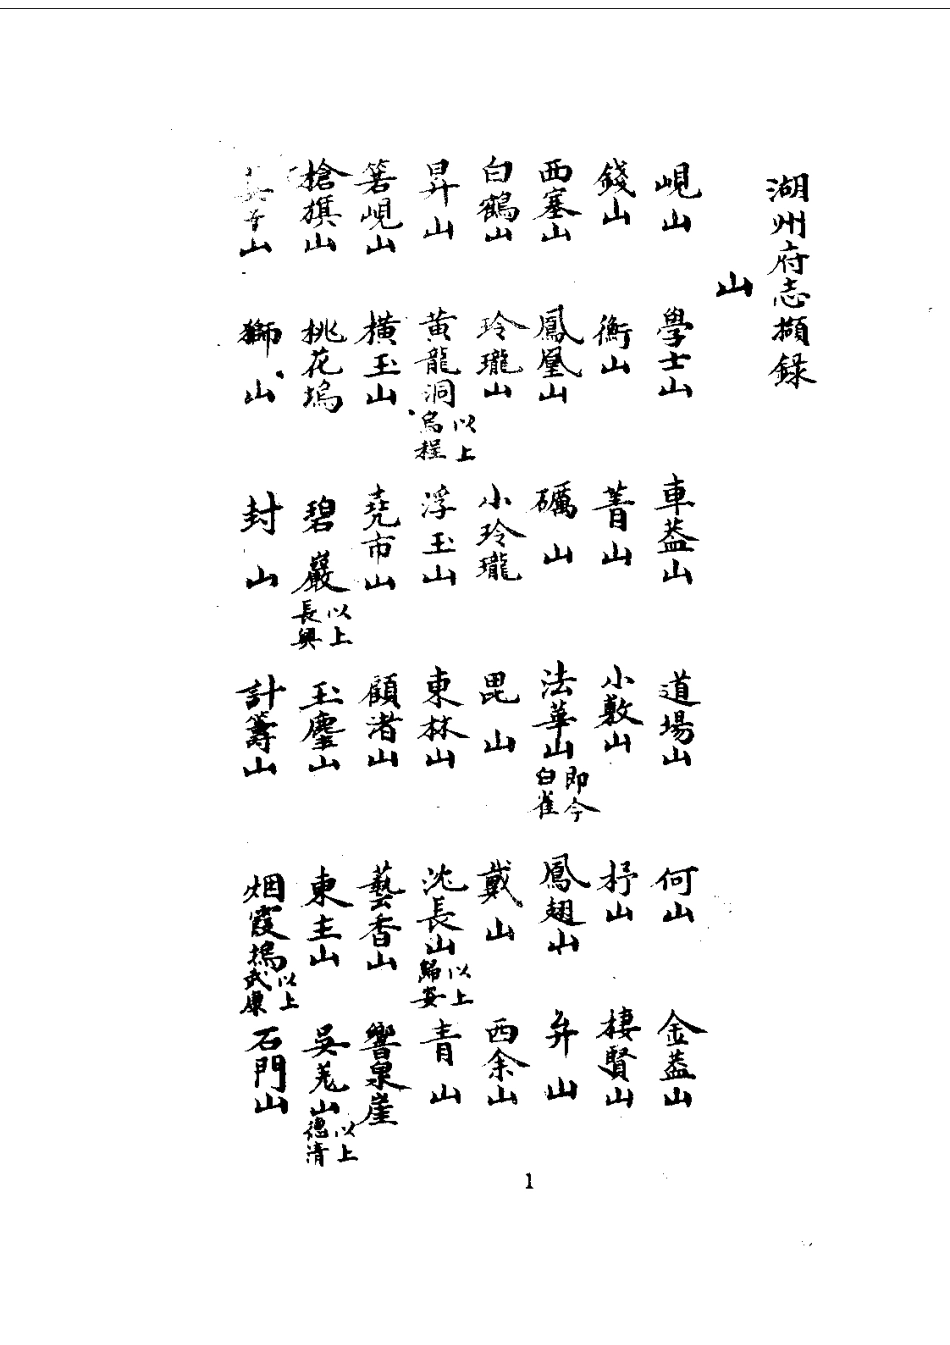 湖州府志摘錄
山
峴山 學士山 車葢山 道場山 何山 金葢山
錢山 衡山 菁山 小敷山 抒山 棲賢山
西塞山 鳳凰山 礪山 法華山即今白雀 鳳翅山 弁山
白鶴山 玲瓏山 小玲瓏 毘山 戴山 西余山
昇山 黃龍洞以上烏程 浮玉山 東林山 沈長山以上歸安 青山
箬峴山 橫玉山 堯市山 顧渚山 藝香山 響泉崖
槍旗山 桃花塢 碧巖以上長興 玉塵山 東主山 吳羌山以上德清
山 獅山 封山 計籌山 烟霞塢以上武康 石門山
1